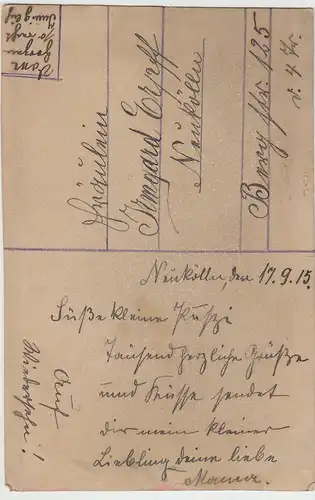 Fräulein
Irmgard
Neukölln
Berg str. 125
v. 4 Tr.
Neukölln, den 17.9.15.
Süße kleine
Tausend herzliche Grüße
und Küsse sendet
dir mein kleiner
Liebling deine liebe
Mama.
Auf
Wiedersehn!